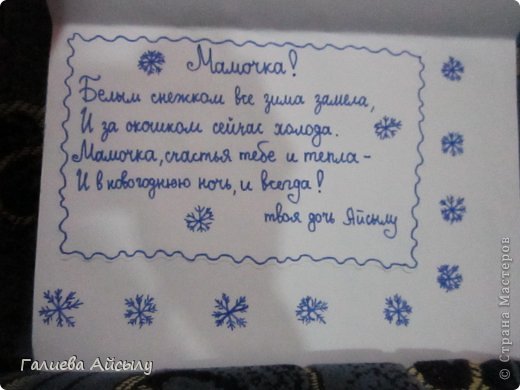 Мамочка!
Белым снежком все зима замела,
И за окошком сейчас холода.
Мамочка, счастья тебе и тепла -
И в новогоднюю ночь, и всегда!
твоя дочь Айсылу
Галиева Айсылу
© Страна Мастеров